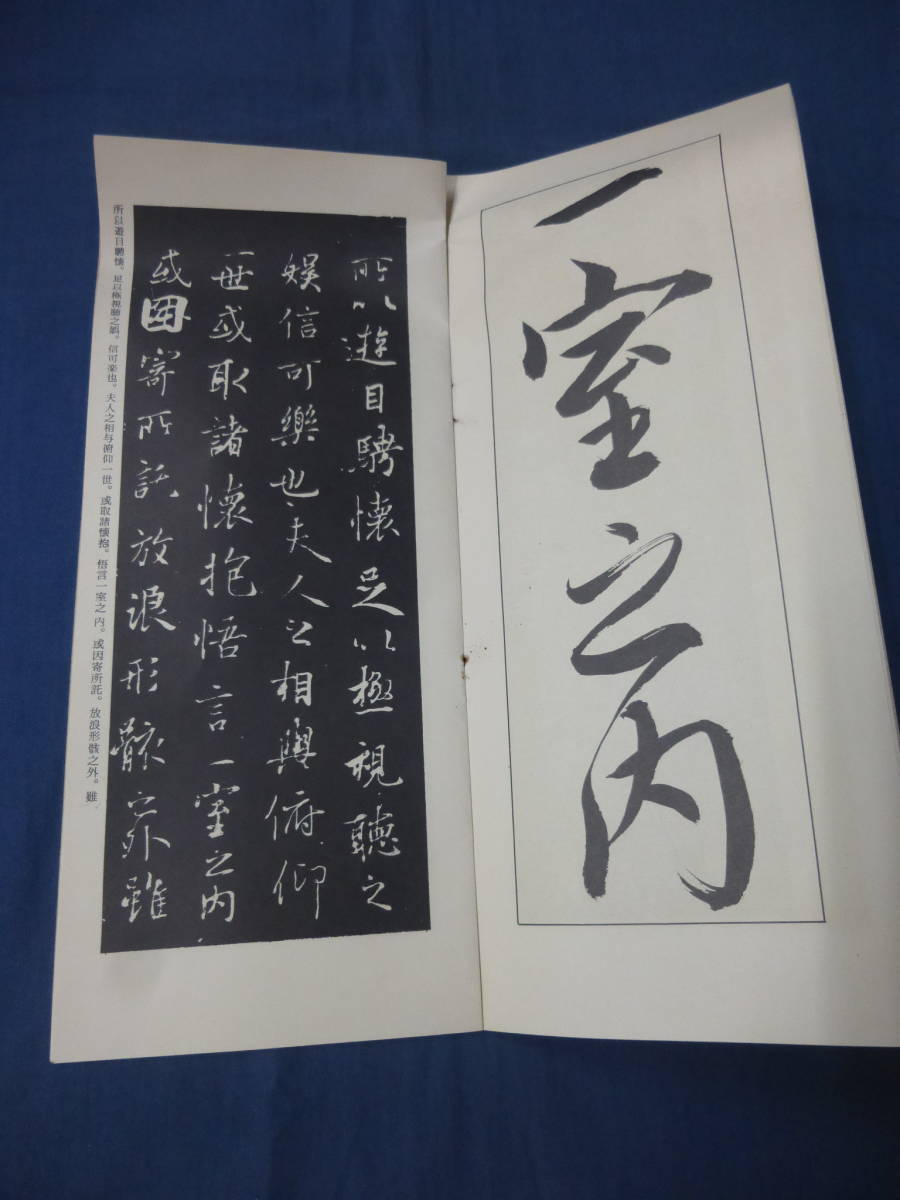 一室之内
所以遊目騁懐足以極視聴之
娯信可樂也夫人之相與俯仰
一世或取諸懐抱悟言一室之内
或因寄所託放浪形骸之外雖
所以遊目騁懐。足以極視聴之娯。信可楽也。夫人之相与俯仰一世。或取諸懐抱。悟言一室之内。或因寄所託。放浪形骸之外。雖